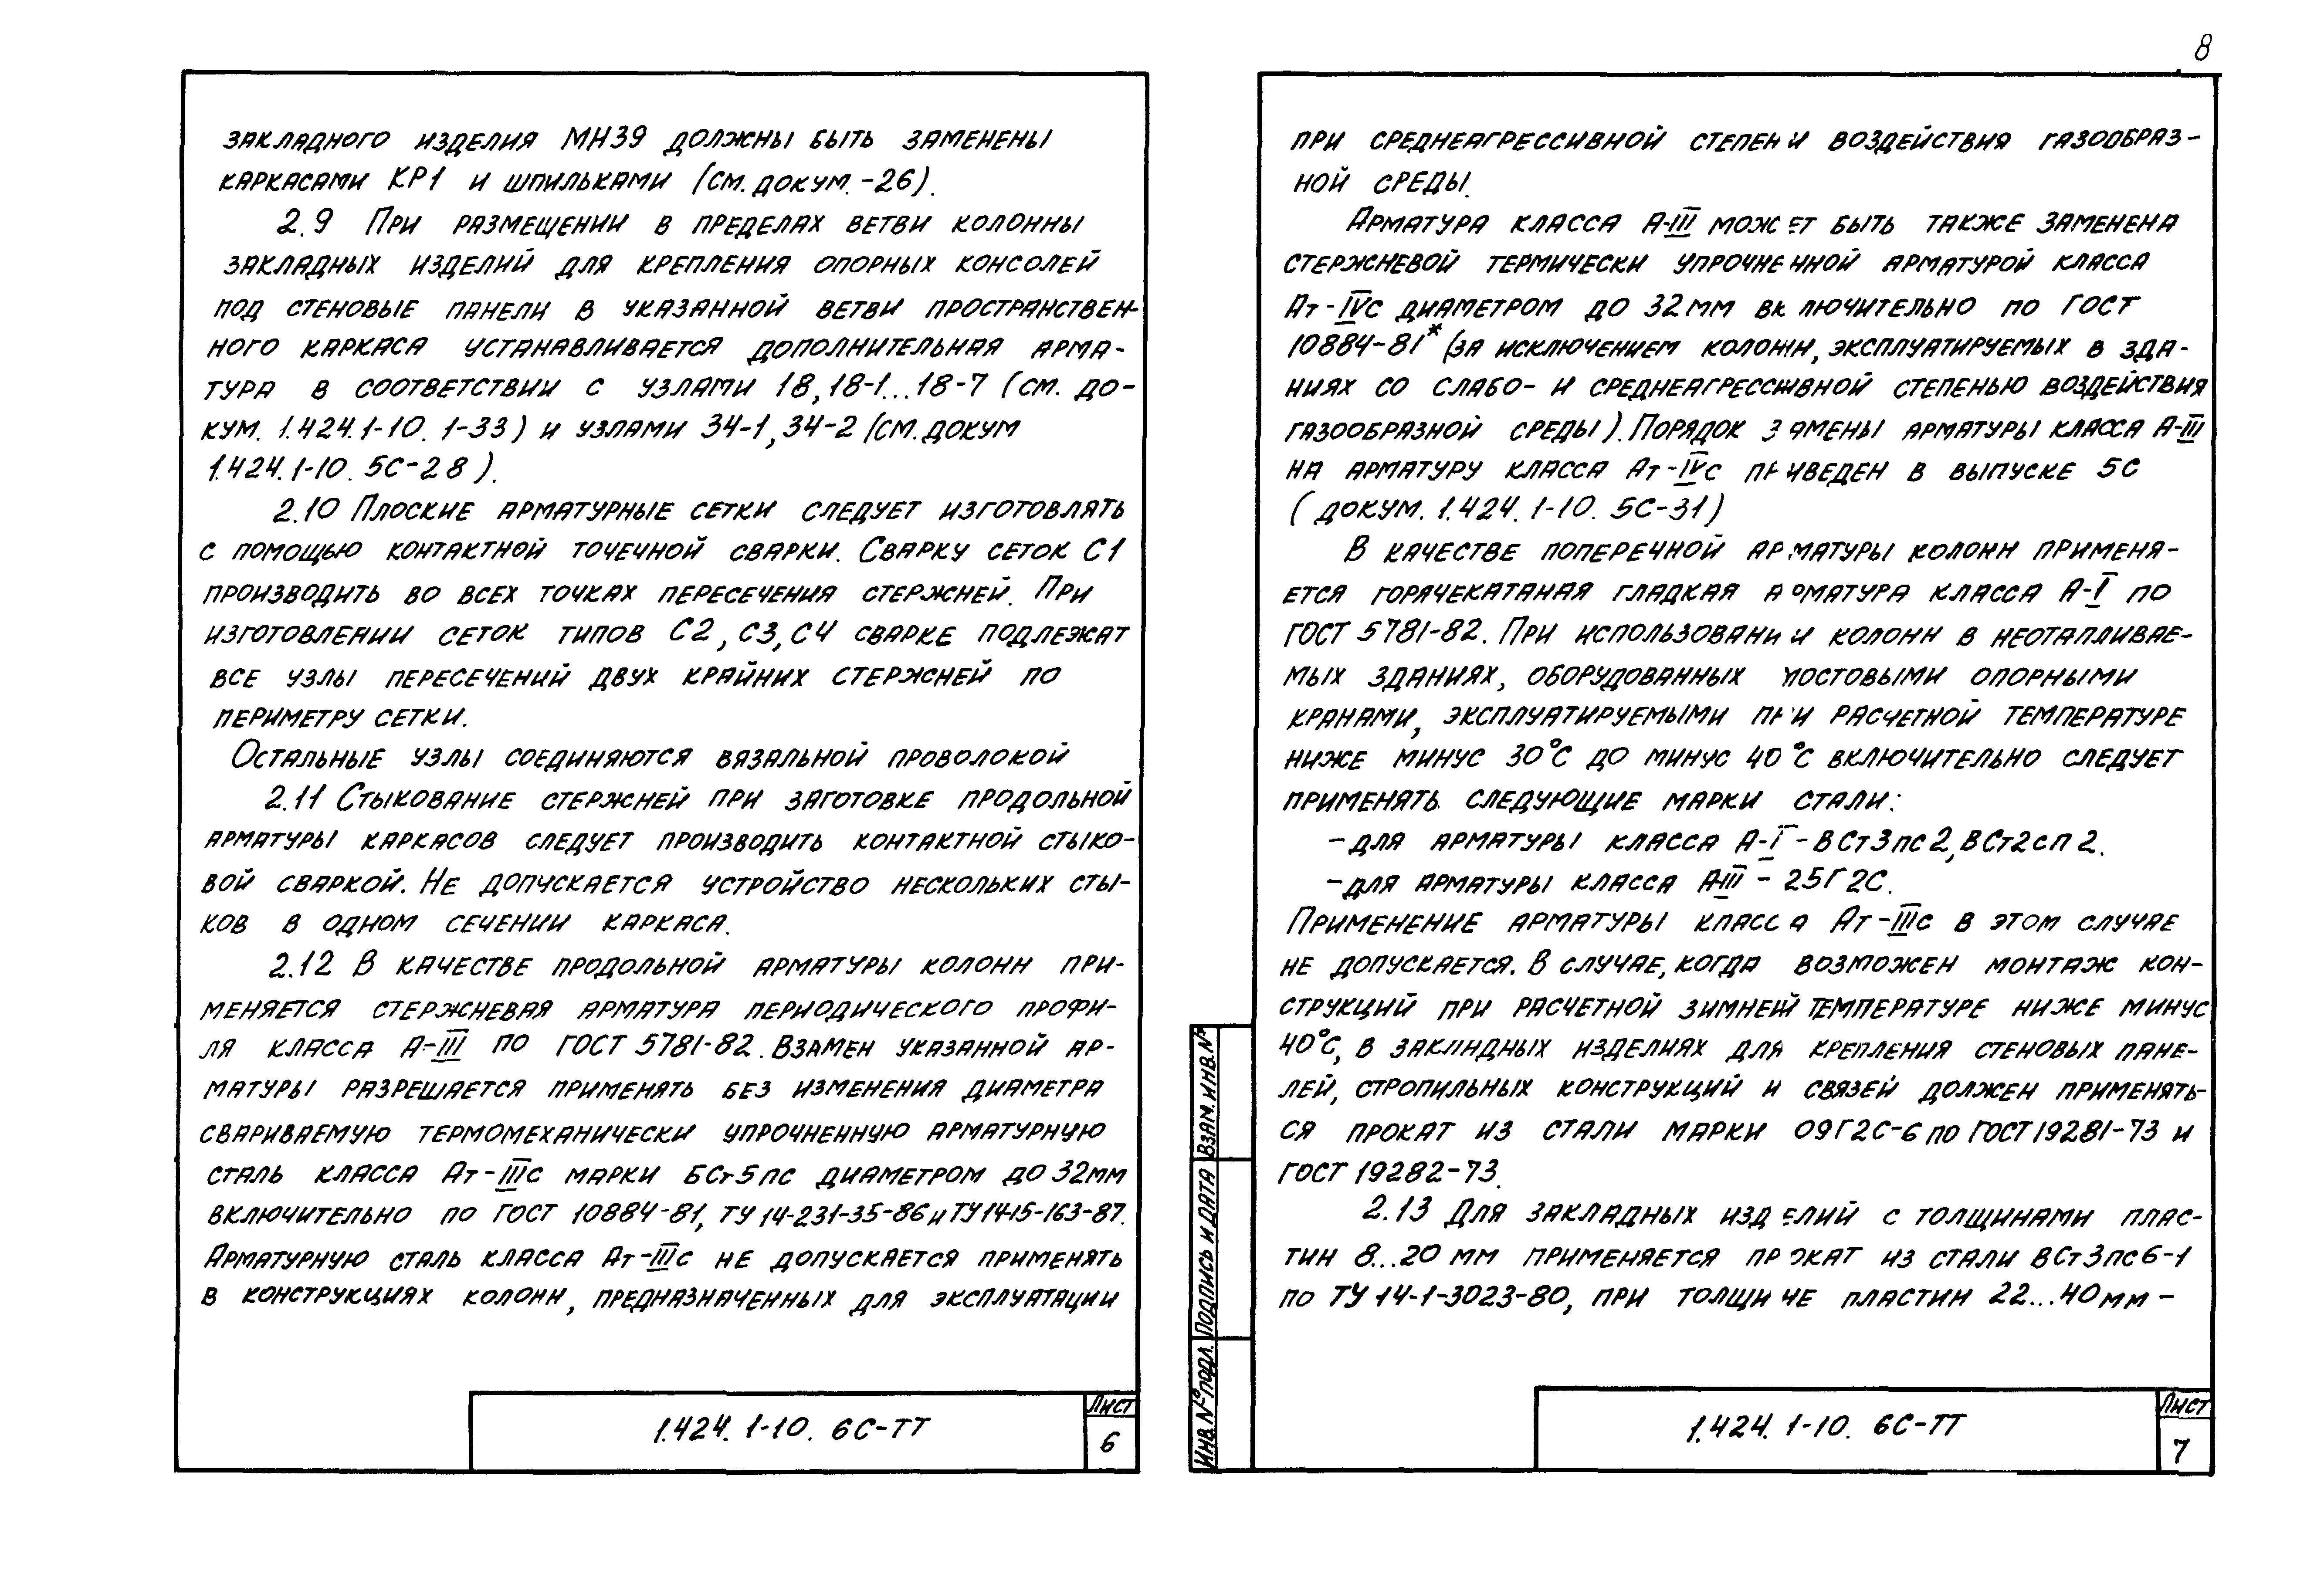 8
закладного изделия МН39 должны быть заменены
каркасами КР1 и шпильками (см. докум. -26).
2.9 При размещении в пределах ветви колонны
закладных изделий для крепления опорных консолей
под стеновые панели в указанной ветви пространствен-
ного каркаса устанавливается дополнительная арма-
тура в соответствии с узлами 18, 18-1...18-7 (см. до-
кум. 1.424.1-10. 1-33) и узлами 34-1, 34-2 (см. докум
1.424.1-10. 5С-28).
2.10 Плоские арматурные сетки следует изготовлять
с помощью контактной точечной сварки. Сварку сеток С1
производить во всех точках пересечения стержней. При
изготовлении сеток типов С2, С3, С4 сварке подлежат
все узлы пересечений двух крайних стержней по
периметру сетки.
Остальные узлы соединяются вязальной проволокой
2.11 Стыкование стержней при заготовке продольной
арматуры каркасов следует производить контактной стыко-
вой сваркой. Не допускается устройство нескольких сты-
ков в одном сечении каркаса.
2.12 В качестве продольной арматуры колонн при-
меняется стержневая арматура периодического профи-
ля класса А-III по ГОСТ 5781-82. Взамен указанной ар-
матуры разрешается применять без изменения диаметра
свариваемую термомеханически упрочненную арматурную
сталь класса Ат-IIIс марки БСт5пс диаметром до 32мм
включительно по ГОСТ 10884-81, ТУ 14-231-35-86 и ТУ14-15-163-87.
Арматурную сталь класса Ат-IIIс не допускается применять
в конструкциях колонн, предназначенных для эксплуатации
1.424.1-10. 6С-ТТ
Лист
6
при среднеагрессивной степени воздействия газообраз-
ной среды.
Арматура класса А-III может быть также заменена
стержневой термически упрочненной арматурой класса
Ат-IVс диаметром до 32мм включительно по ГОСТ
10884-81* (за исключением колонн, эксплуатируемых в зда-
ниях со слабо- и среднеагрессивной степенью воздействия
газообразной среды). Порядок замены арматуры класса А-III
на арматуру класса Ат-IVс приведен в выпуске 5С
(докум. 1.424.1-10. 5С-31)
В качестве поперечной арматуры колонн применя-
ется горячекатаная гладкая арматура класса А-I по
ГОСТ 5781-82. При использовании колонн в неотапливае-
мых зданиях, оборудованных мостовыми опорными
кранами, эксплуатируемыми при расчетной температуре
ниже минус 30°С до минус 40°С включительно следует
применять следующие марки стали:
- для арматуры класса А-I - ВСт3пс2, ВСт2сп2.
- для арматуры класса А-III - 25Г2С.
Применение арматуры класса Ат-IIIс в этом случае
не допускается. В случае, когда возможен монтаж кон-
струкций при расчетной зимней температуре ниже минус
40°С, в закладных изделиях для крепления стеновых пане-
лей, стропильных конструкций и связей должен применять-
ся прокат из стали марки 09Г2С-6 по ГОСТ 19281-73 и
ГОСТ 19282-73.
2.13 Для закладных изделий с толщинами плас-
тин 8...20 мм применяется прокат из стали ВСт3пс6-1
по ТУ 14-1-3023-80, при толщине пластин 22...40мм -
Инв. № подл.
Подпись и дата
Взам. инв. №
1.424.1-10. 6С-ТТ
Лист
7